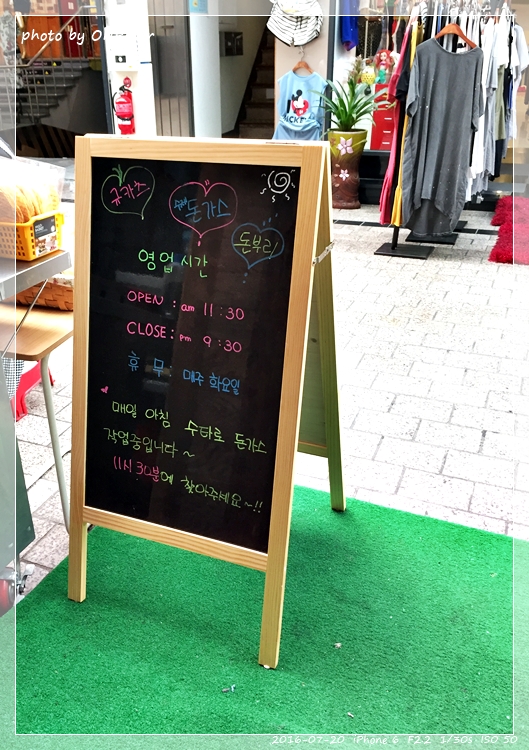 photo by
규카츠
수제 돈가스
돈부리
영업시간
OPEN : am 11:30
CLOSE : pm 9:30
휴 무 : 매주 화요일
매일 아침 수타로 돈가스
작업중입니다~
11시 30분에 찾아주세요~!!
2016-07-20 iPhone 6 F2.2 1/30s ISO 50